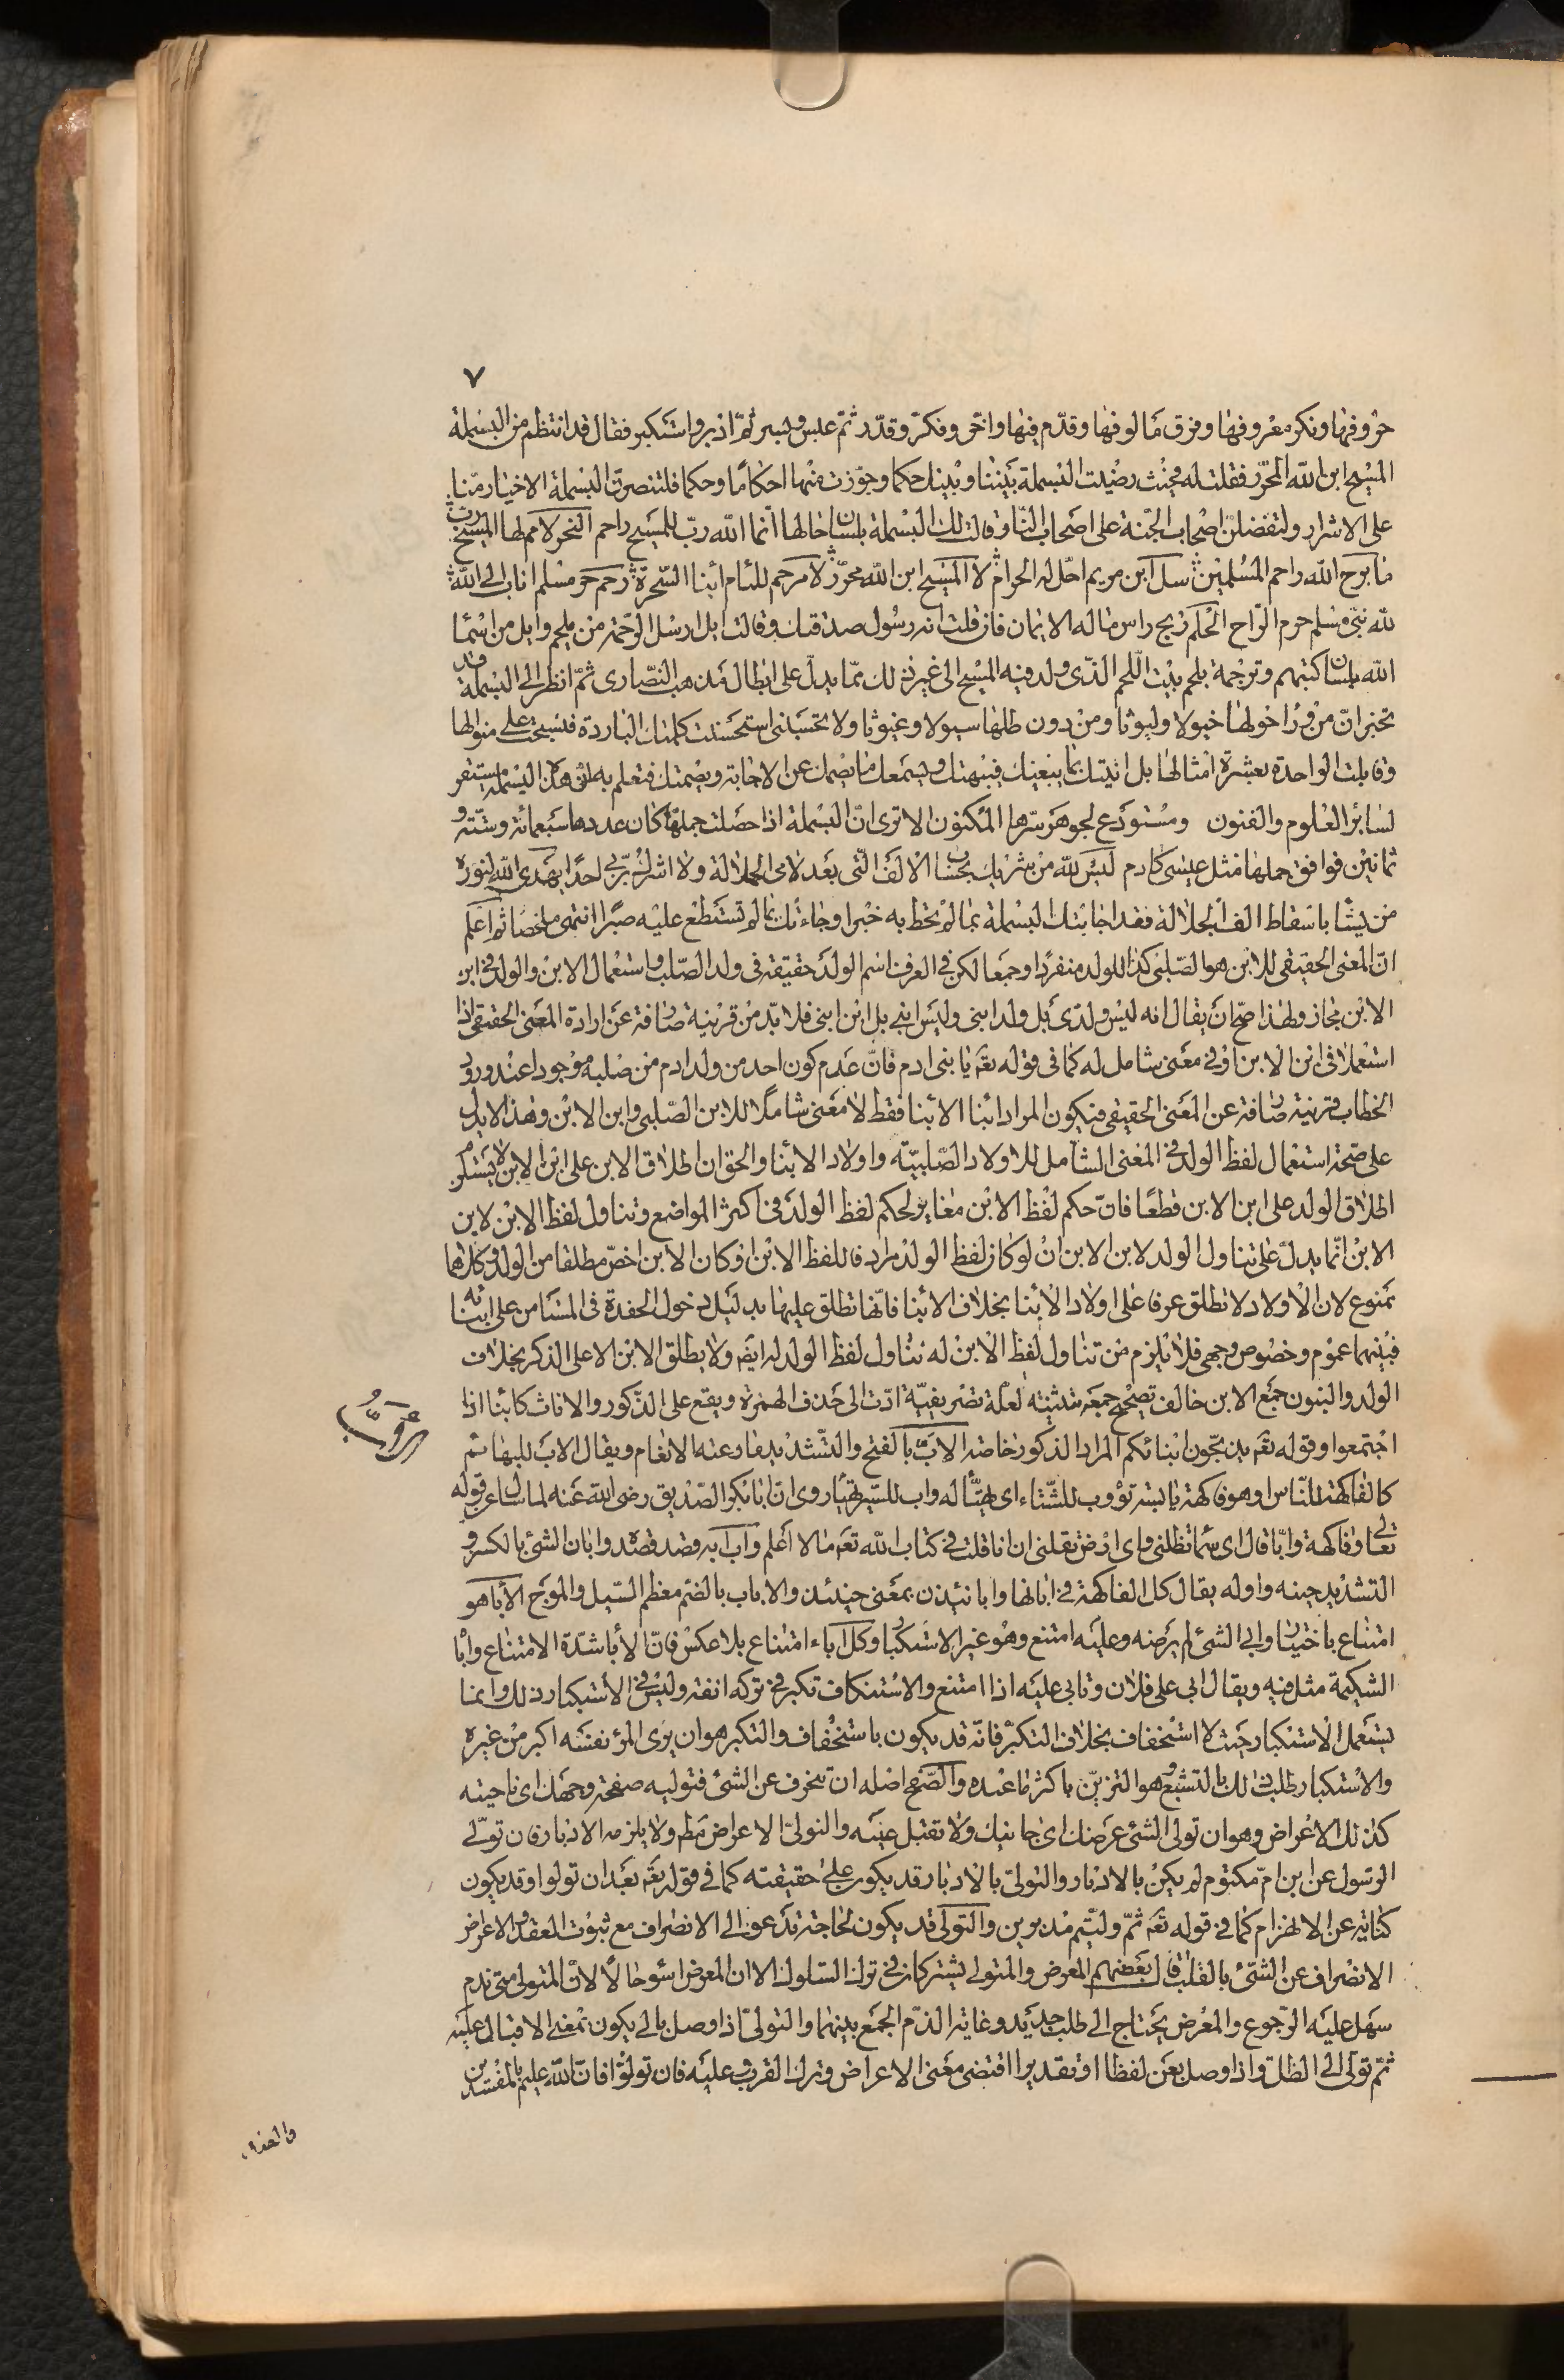 ٧
حروفها ونكر معروفها وفرق مالوفها وقدّم فيها واخّر وفكّر وقدّر ثمّ عبس وبسر ثمّ ادبر واستكبر فقال قد انتظم من البسملة
المسيح ابن الله المحرّر فقلت له فحيث رضيت البسملة بيننا وبينك حكما وجوّزت منها احكاما وحكما فلتنصرنّ البسملة الاخيار منّا
على الاشرار ولتفضلنّ اصحاب الجنّة على اصحاب النار وقالت لك البسملة بلسان حالها انّما الله ربّ للمسيح راحم النحر لامم لها المسيح ربّ
ما برح الله راحم المسلمين سل ابن مريم احلّ له الحرام لا المسيح ابن الله محرّر لا مرحم للئام ابناء السحرة رحم حرّ مسلم اناب الى الله
لله نبيّ مسلم حرم الراح الحلم ربح راس ماله الايمان فان قلت انه رسول صدقتك وقالت ايل ارسل الرحمة من بلحم وايل من اسما
الله بلسان كتبهم وترجمة بلحم بيت اللحم الذي ولد فيه المسيح الى غير ذلك ممّا يدلّ على ابطال مذهب النصارى ثمّ انظر الى البسملة قد
تخبر انّ من وراء حولها خيولا وليوثا ومن دون طلها سيولا وغيوثا ولا تحسبنى استحسنت كلمتك الباردة فنسجت على منوالها
وقابلت الواحدة بعشرة امثالها بل اتيتك بما يبغيك فيبهتك ويسمعك ما يصمك عن الاجابة ويصمتك فتعلم به انّ هذه البسملة مستقر
لسائر العلوم والفنون ومستودع لجوهر سرها المكنون الا ترى انّ البسملة اذا حصلت جملتها كان عددها سبعمائة وستة و
ثمانين فوافق جملها مثل عيسى كادم ليس لله من شريك بحساب الالف التى بعد لامى الجلالة ولا اشرك بربى احدا يهدى الله لنوره
من يشا باسقاط الف الجلالة فقد اجابتك البسملة بما لم تحط به خبرا وجاءتك بما لم تستطع عليه صبرا انتهى ملخصا ثم اعلم
انّ المعنى الحقيقى للابن هو الصلبى كذا للولد منفردا وجمعا لكن فى العرف اسم الولد حقيقة فى ولد الصلب واستعمال الابن والولد فى ابن
الابن مجاز ولهذا صحّ ان يقال انه ليس ولدى بل ولد ابنى وليس ابنى بل ابن ابنى فلا بدّ من قرينة صارفة عن ارادة المعنى الحقيقى اذا
استعملا فى ابن الابن او فى معنى شامل له كما فى قوله تعه يا بنى ادم فانّ عدم كون احد من ولد ادم من صلبه موجودا عند ورود
الخطاب قرينة صارفة عن المعنى الحقيقى فيكون المراد ابنا الابنا فقط لا معنى شاملا للابن الصلبى وابن الابن وهذا لا يدل
على صحة استعمال لفظ الولد فى المعنى الشامل للاولاد الصلبيّة واولاد الابنا والحق ان اطلاق الابن على ابن الابن لا يستلزم
اطلاق الولد على ابن الابن قطعا فانّ حكم لفظ الابن مغاير لحكم لفظ الولد فى اكثر المواضع وتناول لفظ الابن لابن
الابن انّما يدلّ على تناول الولد لابن الابن ان لو كان لفظ الولد مرادفا للفظ الابن او كان الابن اخصّ مطلقا من الولد وكلاهما
ممنوع لان الاولاد لا تطلق عرفا على اولاد الابنا بخلاف الابنا فانّها تطلق عليها بدليل دخول الحفدة فى المستامن على ابنائه
فبينهما عموم وخصوص وجهى فلا يلزم من تناول لفظ الابن له تناول لفظ الولد له ايضه ولا يطلق الابن الا على الذكر بخلاف
الولد والبنون جمع الابن خالف تصحيح جمعه تثنيته لعلّة تصريفيّة ادّت الى حذف الهمزة ويقع على الذكور والاناث كابنا اذا
اجتمعوا وقوله تعه يذبحون ابنائكم المراد الذكور خاصة الابّ بالفتح والتشديد ما رعته الانعام ويقال الابّ للبهائم
كالفاكهة للناس او هو فاكهة يابسة تؤوب للشتاء اى تهيّأ له واب للسير تهيّأ روى انّ ابا بكر الصديق رضى الله عنه لما سئل عن قوله
تعالى وفاكهة وابّا قال اى سما تظلنى واى ارض تقلنى ان انا قلت فى كتاب الله تعه ما لا اعلم وابّ ابّه قصد قصده وابان الشئ بالكسر و
التشديد حينه واوله يقال كل الفاكهة فى ابانها وابانئيذن بمعنى حينئذ والاباب بالضم معظم السيل والموج الأبا هو
امتناع باختيار وابى الشئ لم يرضه وعليه امتنع وهو غير الاستكبار وكل اباء امتناع بلا عكس فانّ الأبا شدّة الامتناع وابا
الشكيمة مثل فيه ويقال ابى على فلان وتابى عليه اذا امتنع والاستنكاف تكبر فى تركه انفة وليس فى الاستكبار ذلك وانما
يستعمل الاستكبار حيث لا استخفاف بخلاف التكبّر فانّه قد يكون باستخفاف والتكبر هو ان يرى المرؤ نفسه اكبر من غيره
والاستكبار طلب ذلك بالتشبع وهو التزيّن باكثر ما عنده والصفح اصله ان تنحرف عن الشئ فتوليه صفحة وجهك اى ناحيته
كذلك الاعراض وهو ان تولى الشئ عرضك اى جانبك ولا تقبل عليه والتولىّ الاعراض مطه ولا يلزمه الادبار فان تولّى
الرسول عن ابن امّ مكتوم لم يكن بالادبار والتولىّ بالادبار قد يكون على حقيقته كما فى قوله تعه بعد ان تولوا وقد يكون
كناية عن الانهزام كما فى قوله تعه ثمّ وليّتم مدبرين والتولى قد يكون لحاجة تدعو الى الانصراف مع ثبوت العقد والاعراض
الانصراف عن الشئ بالقلب قال بعضهم المعرض والمتولى يشتركان فى ترك السلوك الا ان المعرض اسوء حالا لانّ المتولى متى ندم
سهل عليه الرجوع والمعرض يحتاج الى طلب جديد وغاية الذم الجمع بينهما والتولىّ اذا وصل بالى يكون بمعنى الاقبال عليه
ثمّ تولّى الى الظلّ واذا وصل بعن لفظا او تقديرا اقتضى معنى الاعراض وترك القرب عليه فان تولّوا فانّ الله عليم بالمفسدين